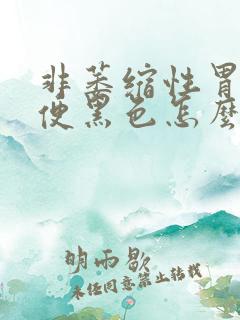 非萎缩性胃
便黑色怎麽
明雨歇
未经同意禁止转载